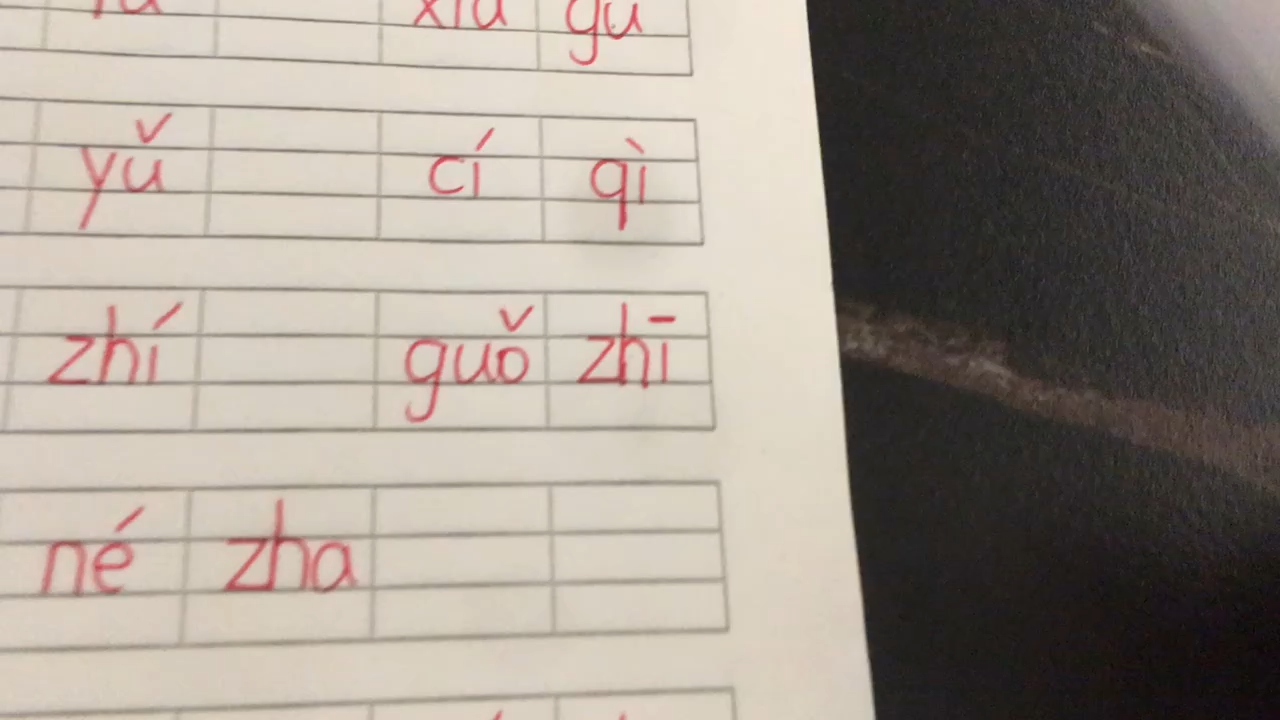 yǔ cí qì
zhí guǒ zhī
né zha